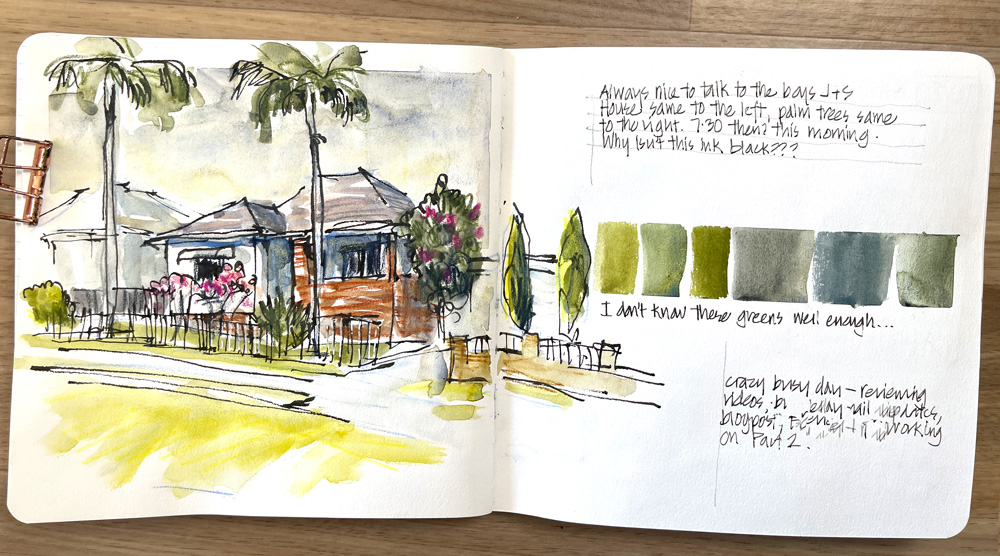 Always nice to talk to the boys J+S
House same to the left, palm trees same
to the right. 7.30 then? this morning.
Why isn't this ink black???
I don't know these greens well enough...
crazy busy day - reviewing
videos,
blogpost, working
on Part 2.